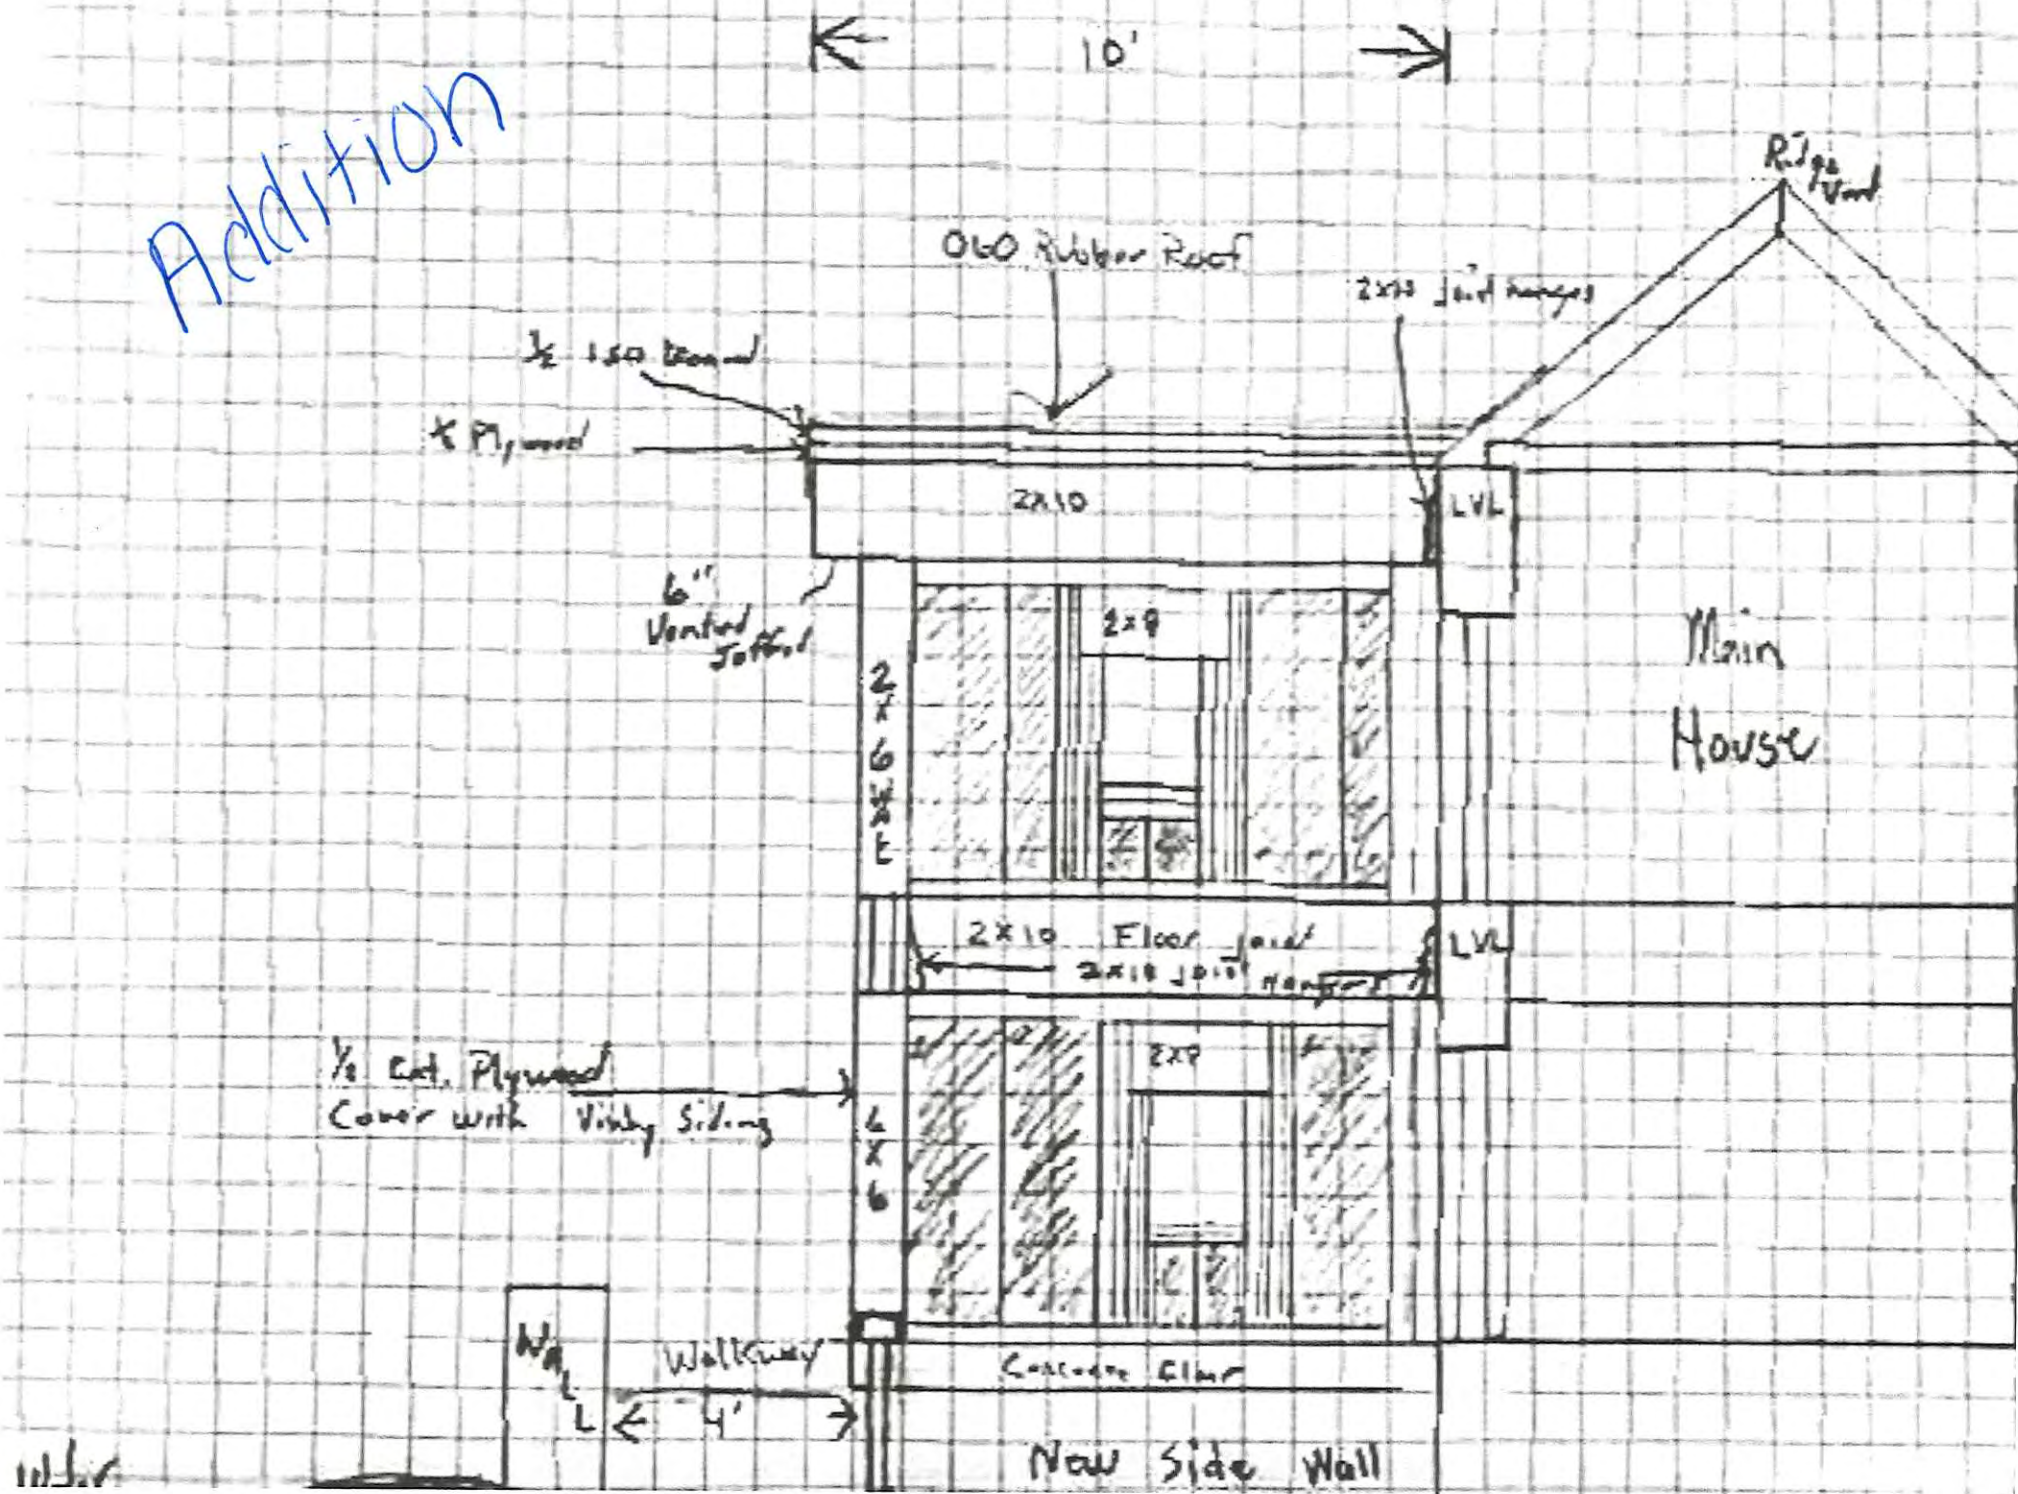 10'
Addition
Ridge
Vent
060 Rubber Roof
2x10 Joist hanges
1/2 ISO Board
Plywood
2x10
LVL
6"
Vented
Soffed
2x8
Main
House
2x6
2x10 Floor Joist
2x10 Joist Hangers
LVL
1/2 Ext. Plywood
Cover with Siding
2x8
6x6
WALL
Walkway
4'
Concrete Floor
New Side Wall